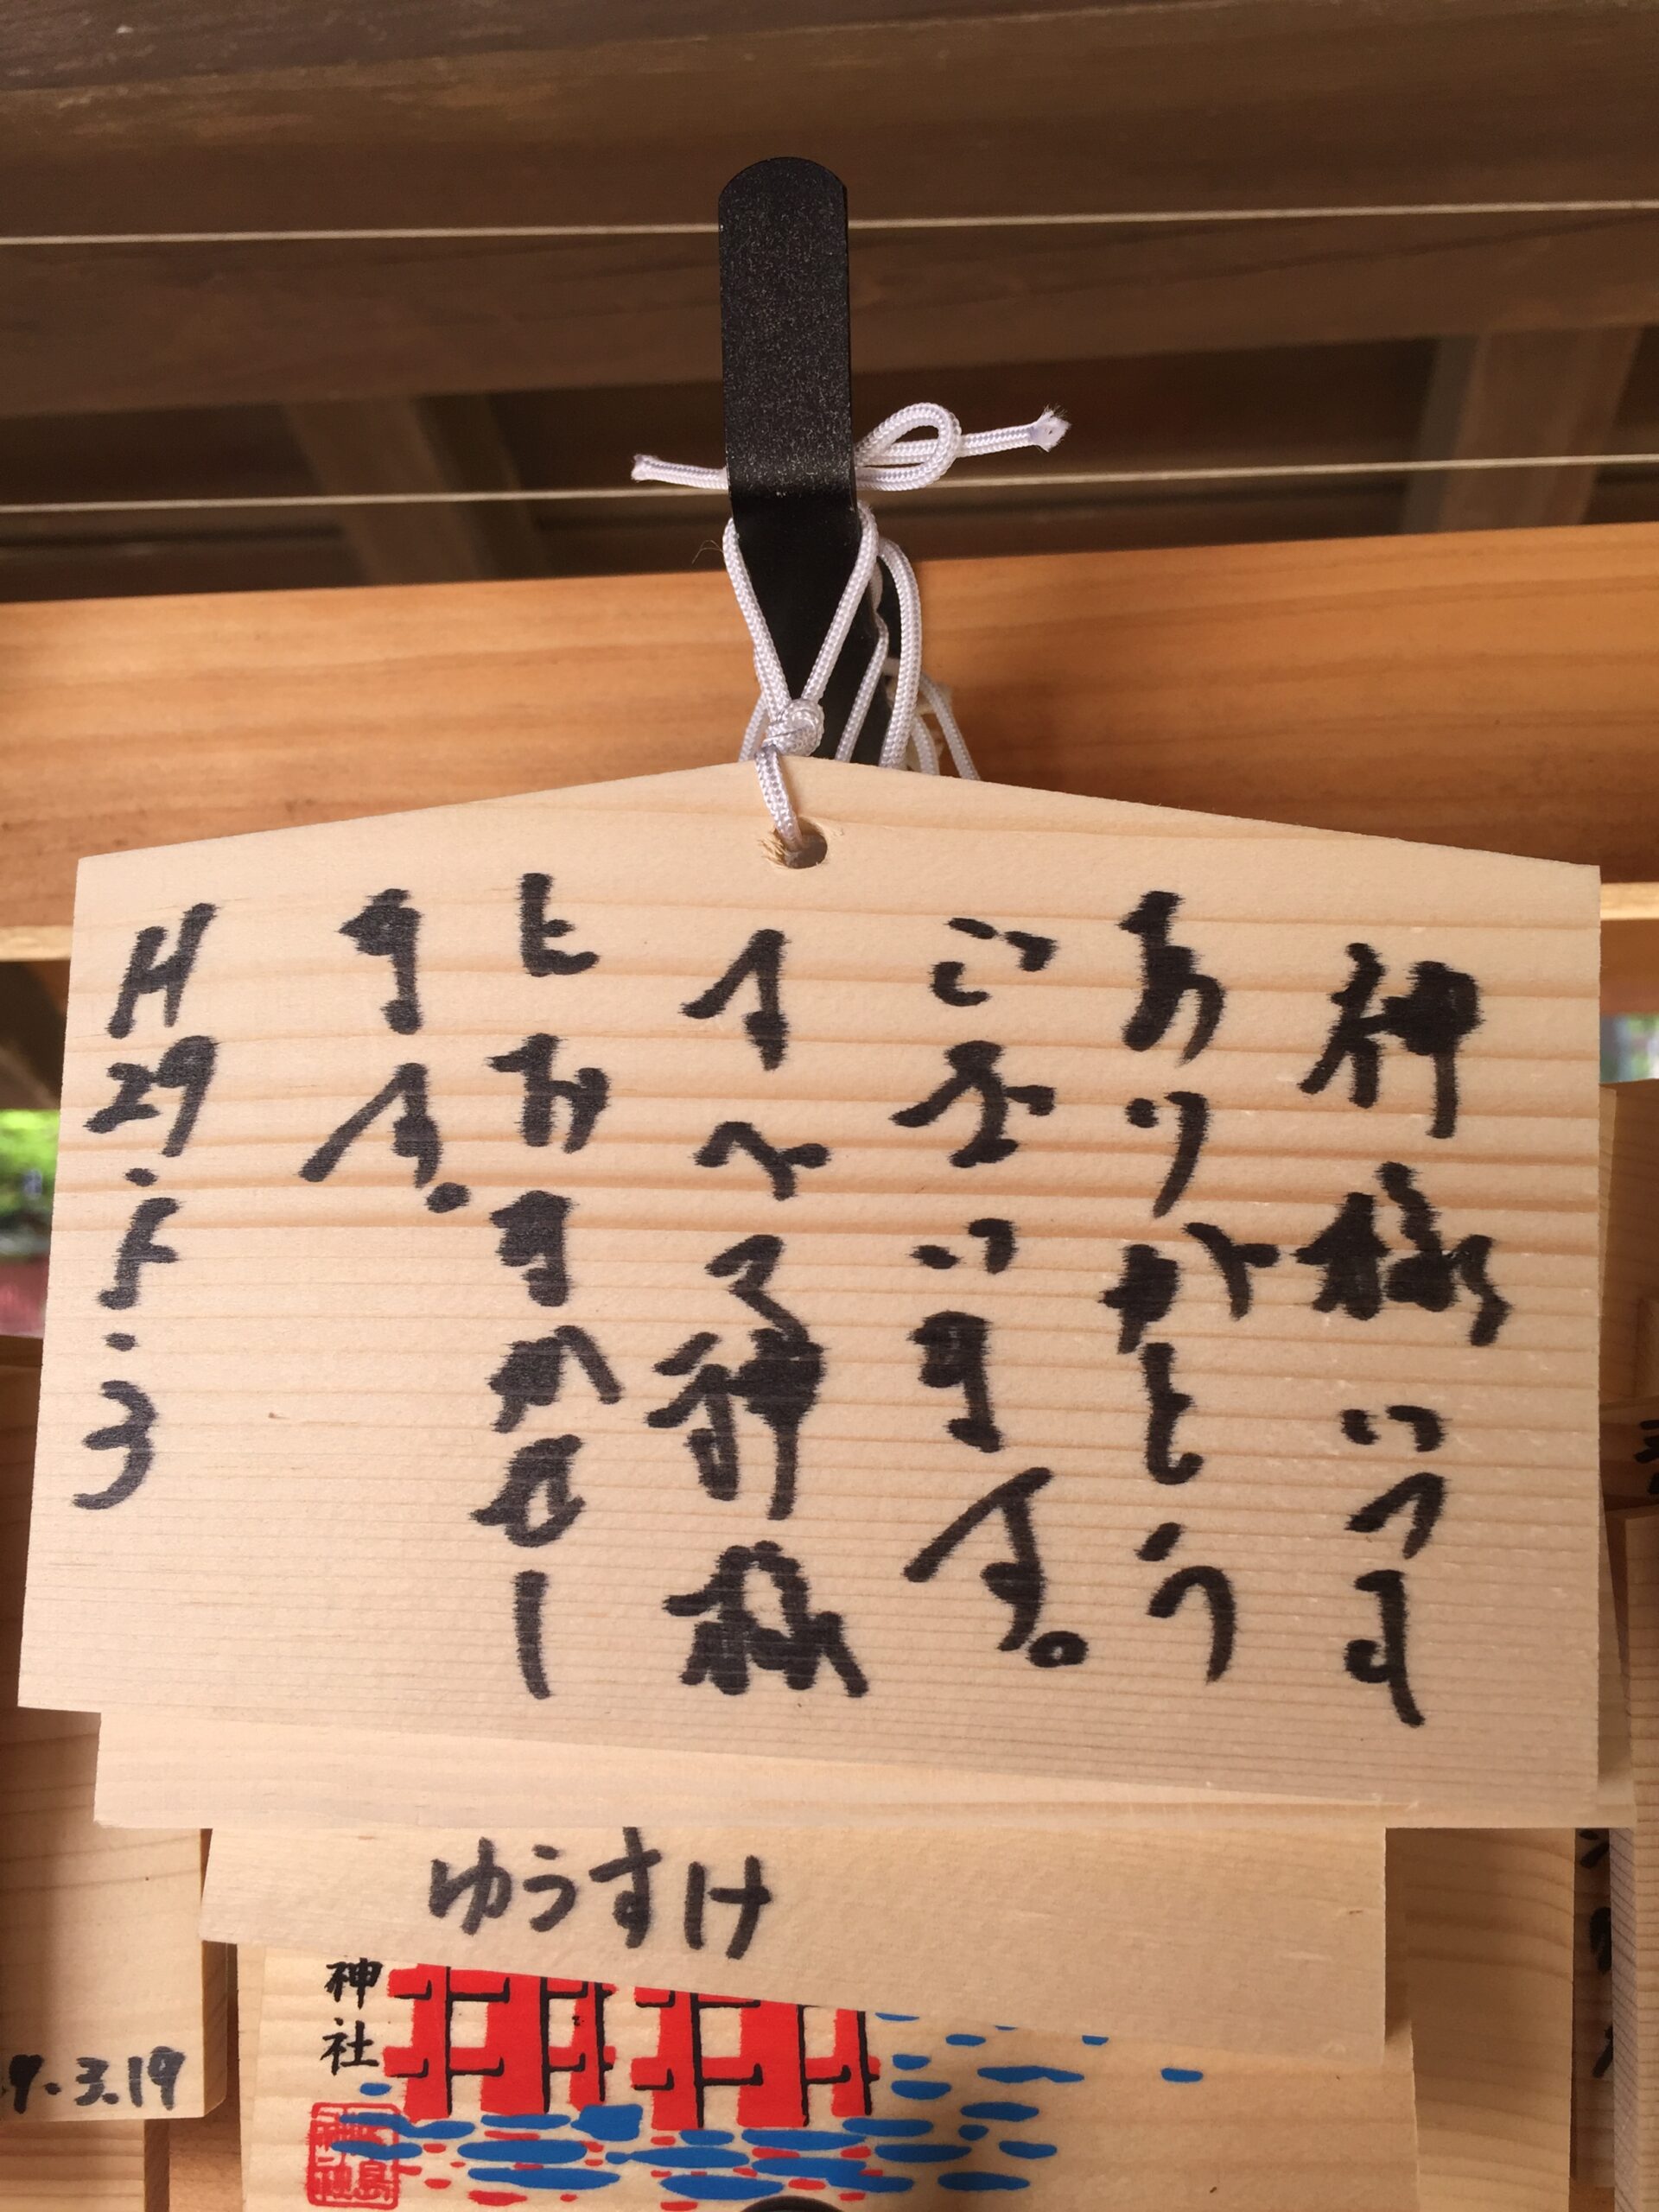 神様いつも
ありがとう
ございます。
すべて神様
におまかせし
ます。
H29.5.3
ゆうすけ
神社
9.3.19